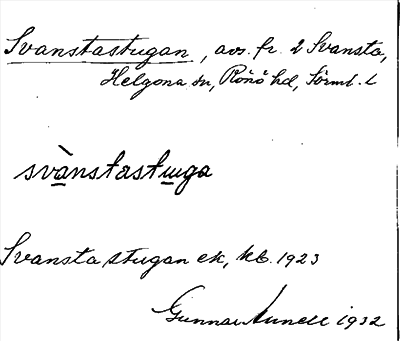 Svanstastugan, avs. fr. 2 Svansta,
Helgona sn, Rönö hd, Sörml. l
svànstastuga
Svansta stugan ek, kb. 1923
Gunnar Lunell 1932